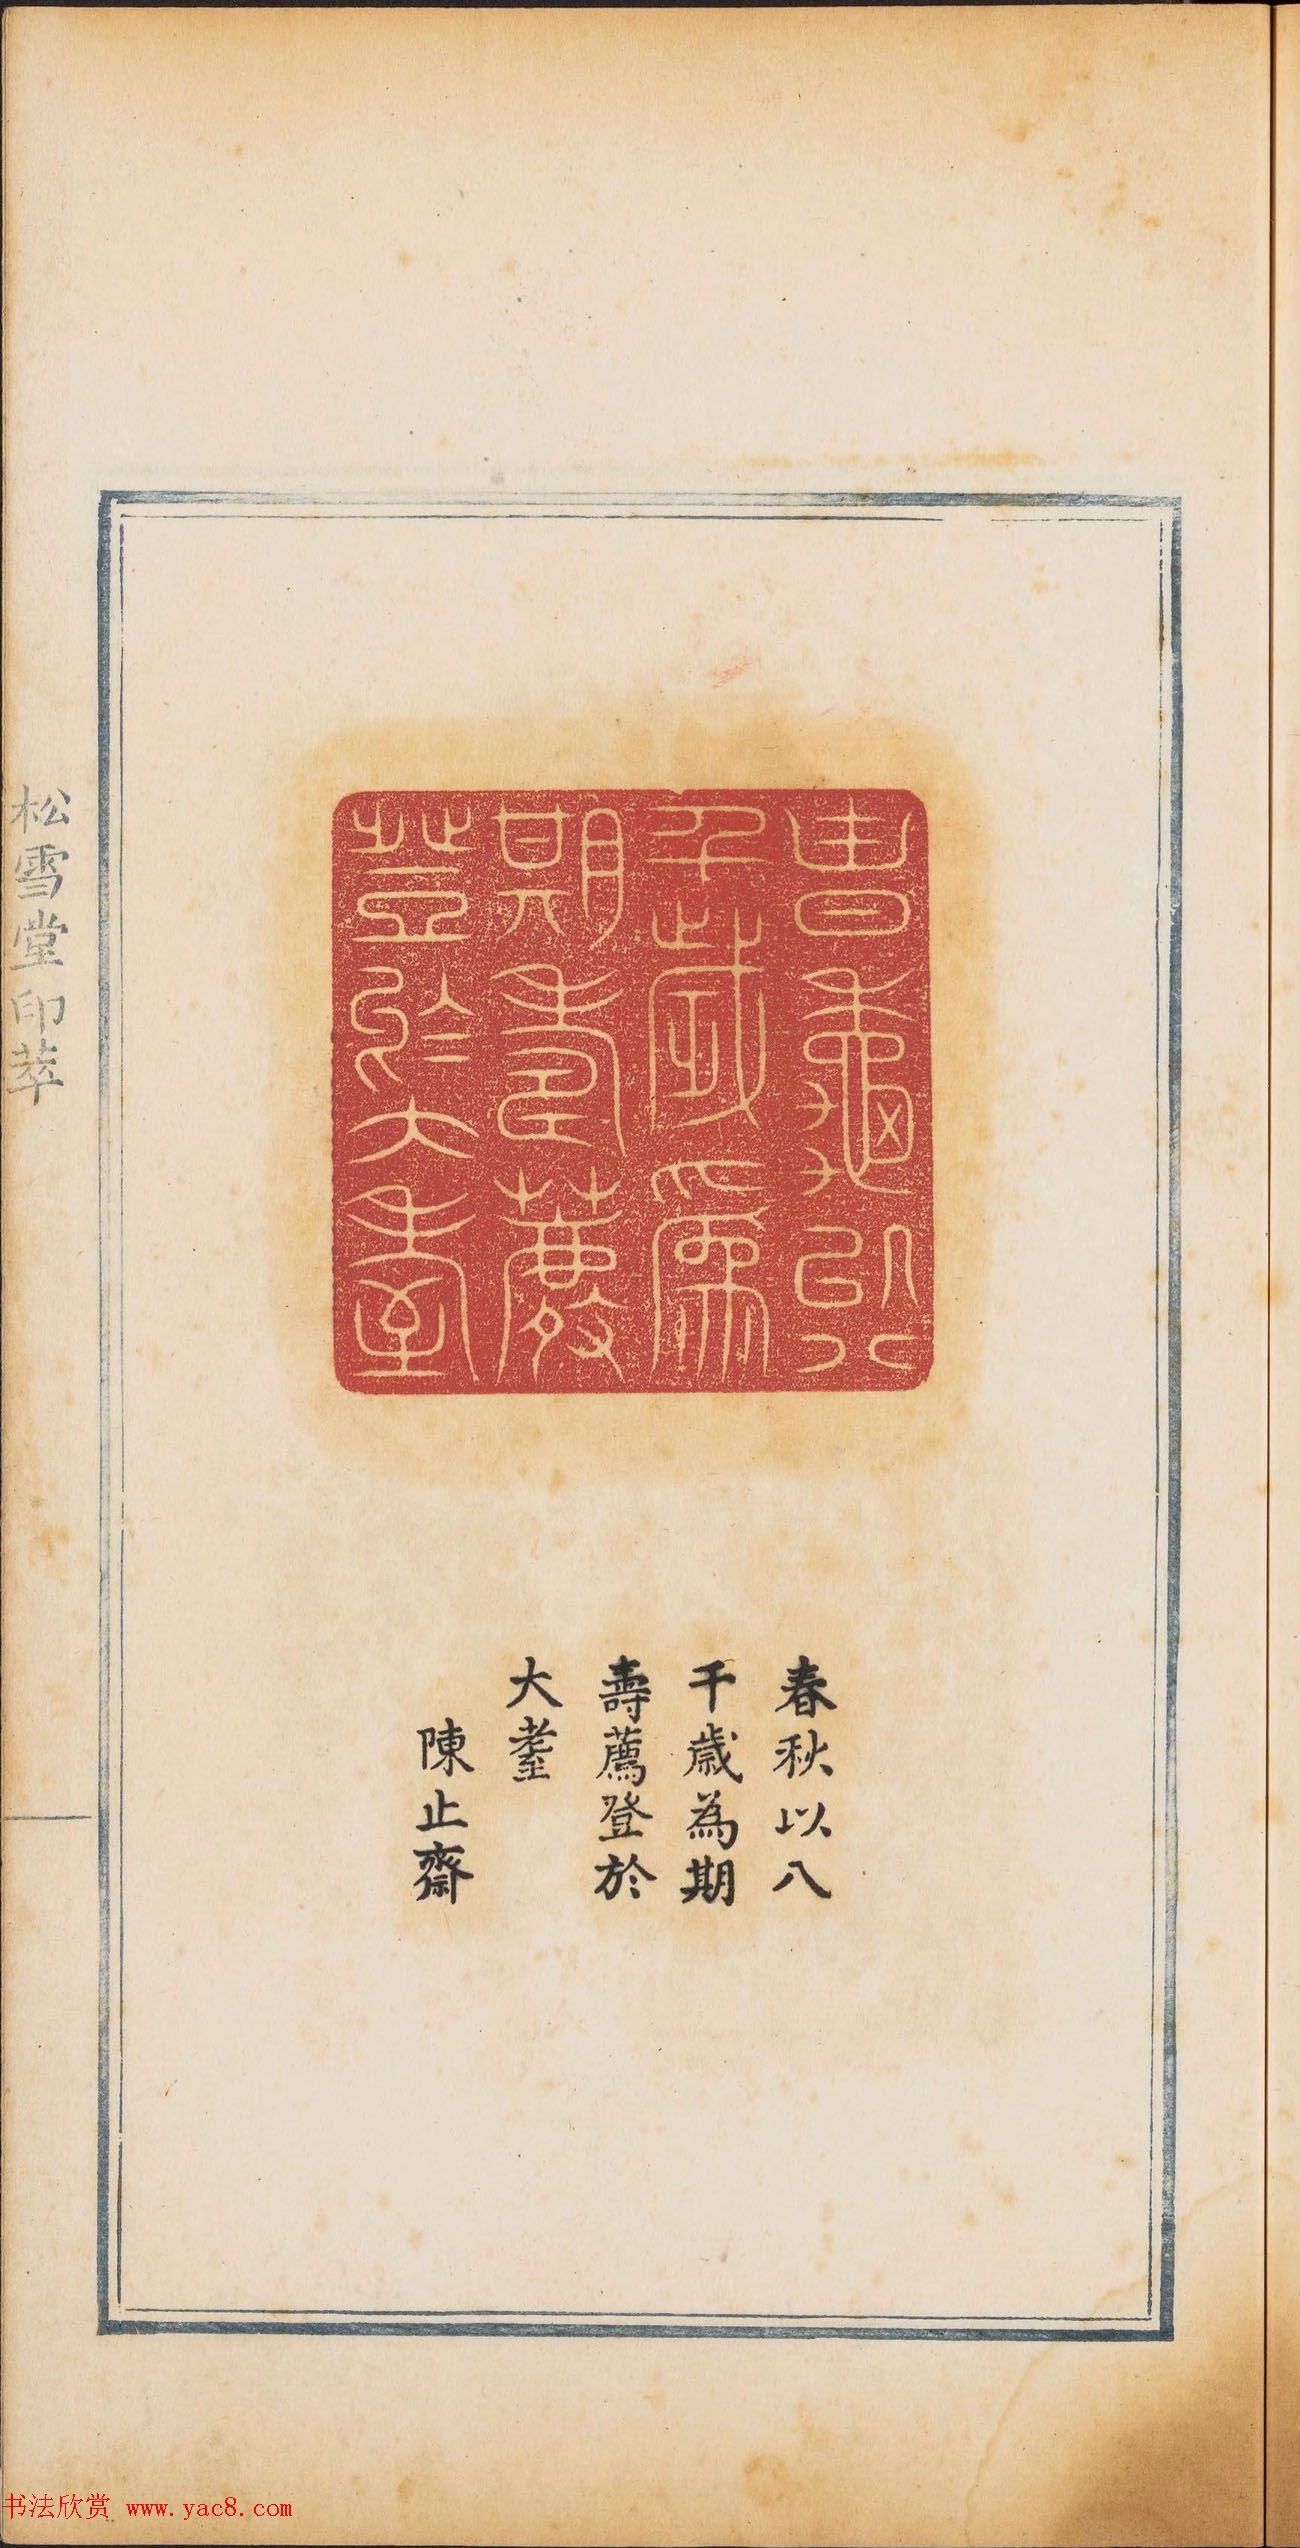 春秋以八
千歲為期
壽薦登於
大耋
春秋以八
千歲為期
壽薦登於
大耋
陳止齋
松雪堂印萃
书法欣赏 www.yac8.com